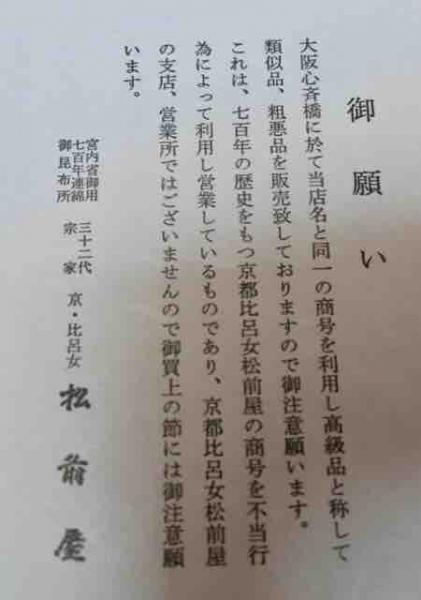 御願い
大阪心斉橋に於て当店名と同一の商号を利用し高級品と称して
類似品、粗悪品を販売致しておりますので御注意願います。
これは、七百年の歴史をもつ京都比呂女松前屋の商号を不当行
為によって利用し営業しているものであり、京都比呂女松前屋
の支店、営業所ではございませんので御買上の節には御注意願
います。
宮内省御用
七百年連綿
御昆布所
三十二代
宗家
京・比呂女
松前屋